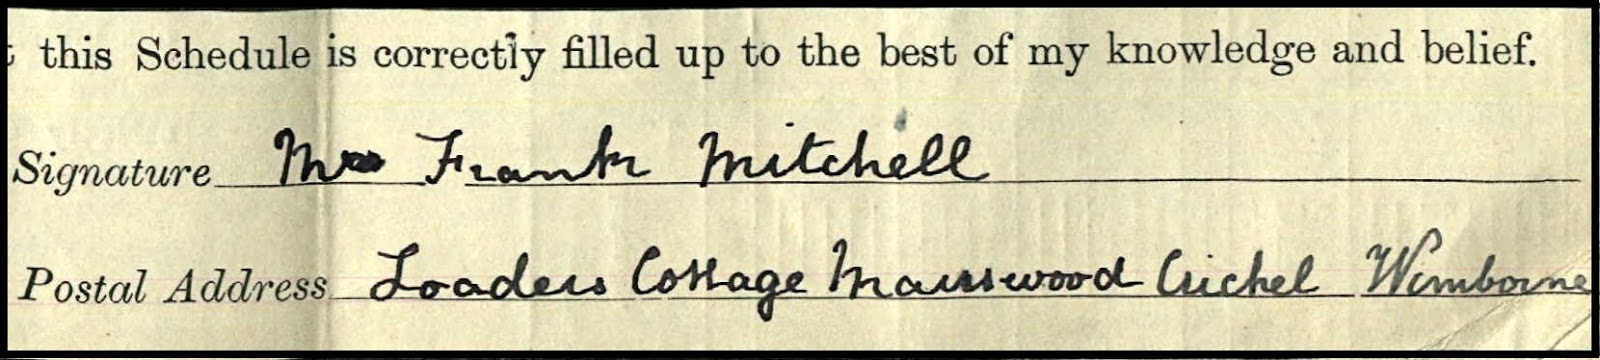 this Schedule is correctly filled up to the best of my knowledge and belief.
Signature Mrs Frank Mitchell
Postal Address Loaders Cottage Mannswood Crichel Wimborne